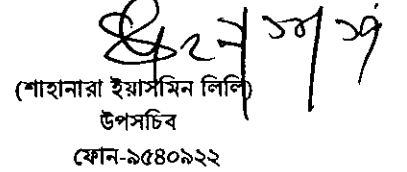 (শাহানারা ইয়াসমিন লিলি)
উপসচিব
ফোন-৯৫৪০৯২২